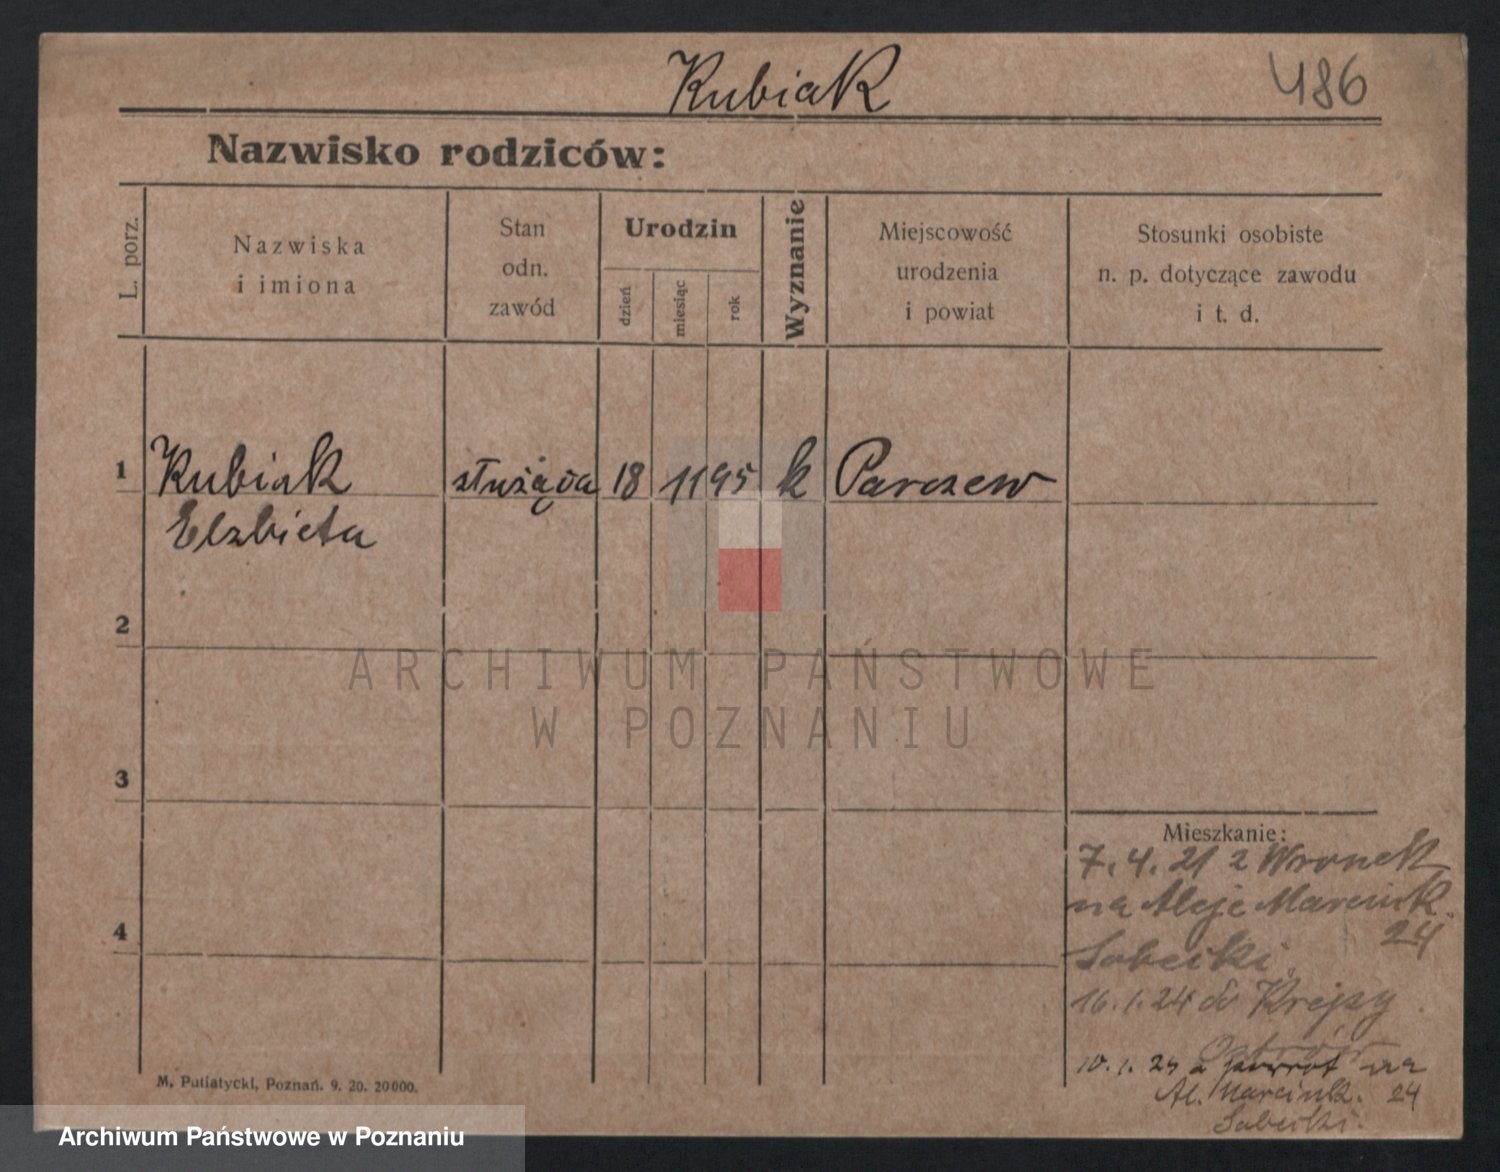 Kubiak
486
Nazwisko rodziców:
L. porz.
Nazwiska
i imiona
Stan
odn.
zawód
Urodzin
dzień
miesiąc
rok
Wyznanie
Miejscowość
urodzenia
i powiat
Stosunki osobiste
n. p. dotyczące zawodu
i t. d.
1
Kubiak służąca 18 11 95 k Parczew
Elzbieta
2
3
4
ARCHIWUM PAŃSTWOWE
W POZNANIU
Mieszkanie:
7.4.21 z Wronek
na Aleje Marcink.
24
Sobecki
16.1.24 do
Ostrów
10.1.25 z powrot na
Al. Marcink. 24
Sobecki.
M. Putiatycki, Poznań. 9. 20. 20000.
Archiwum Państwowe w Poznaniu